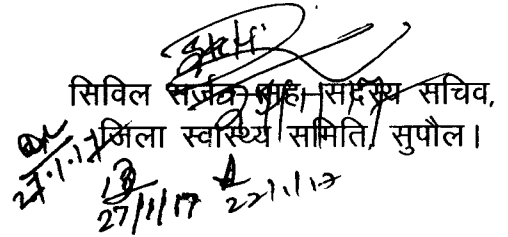 सिविल सर्जन-सह-सदस्य सचिव,
जिला स्वास्थ्य समिति, सुपौल।
27.1.17
27/1/17